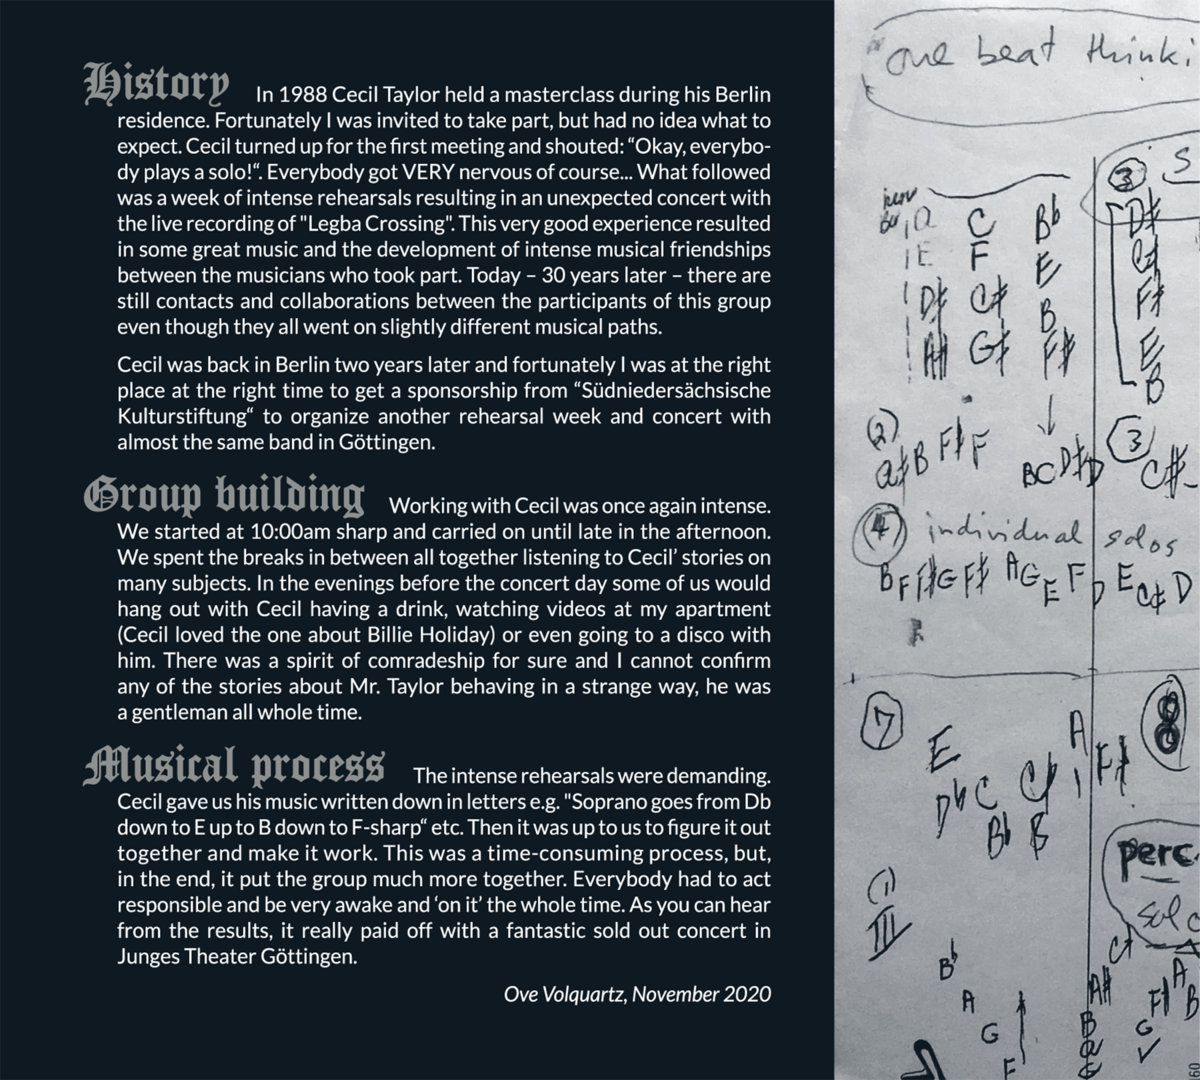 History In 1988 Cecil Taylor held a masterclass during his Berlin
residence. Fortunately I was invited to take part, but had no idea what to
expect. Cecil turned up for the first meeting and shouted: “Okay, everybo-
dy plays a solo!“. Everybody got VERY nervous of course... What followed
was a week of intense rehearsals resulting in an unexpected concert with
the live recording of "Legba Crossing". This very good experience resulted
in some great music and the development of intense musical friendships
between the musicians who took part. Today – 30 years later – there are
still contacts and collaborations between the participants of this group
even though they all went on slightly different musical paths.
Cecil was back in Berlin two years later and fortunately I was at the right
place at the right time to get a sponsorship from “Südniedersächsische
Kulturstiftung“ to organize another rehearsal week and concert with
almost the same band in Göttingen.
Group building Working with Cecil was once again intense.
We started at 10:00am sharp and carried on until late in the afternoon.
We spent the breaks in between all together listening to Cecil’ stories on
many subjects. In the evenings before the concert day some of us would
hang out with Cecil having a drink, watching videos at my apartment
(Cecil loved the one about Billie Holiday) or even going to a disco with
him. There was a spirit of comradeship for sure and I cannot confirm
any of the stories about Mr. Taylor behaving in a strange way, he was
a gentleman all whole time.
Musical process The intense rehearsals were demanding.
Cecil gave us his music written down in letters e.g. "Soprano goes from Db
down to E up to B down to F-sharp“ etc. Then it was up to us to figure it out
together and make it work. This was a time-consuming process, but,
in the end, it put the group much more together. Everybody had to act
responsible and be very awake and ‘on it’ the whole time. As you can hear
from the results, it really paid off with a fantastic sold out concert in
Junges Theater Göttingen.
Ove Volquartz, November 2020
one beat thinki
3 S
C Bb D#
E F E
D# C# B F#
A# G# F# E
B
(2) B F# F BC D# D
3 C#
4 individual solos
B F F# G F# A G E F D E C# D
7 E A 8
Db C C# F#
Bb B
perc
(1) solo
III
Bb A#
A F# A B
G B G
F